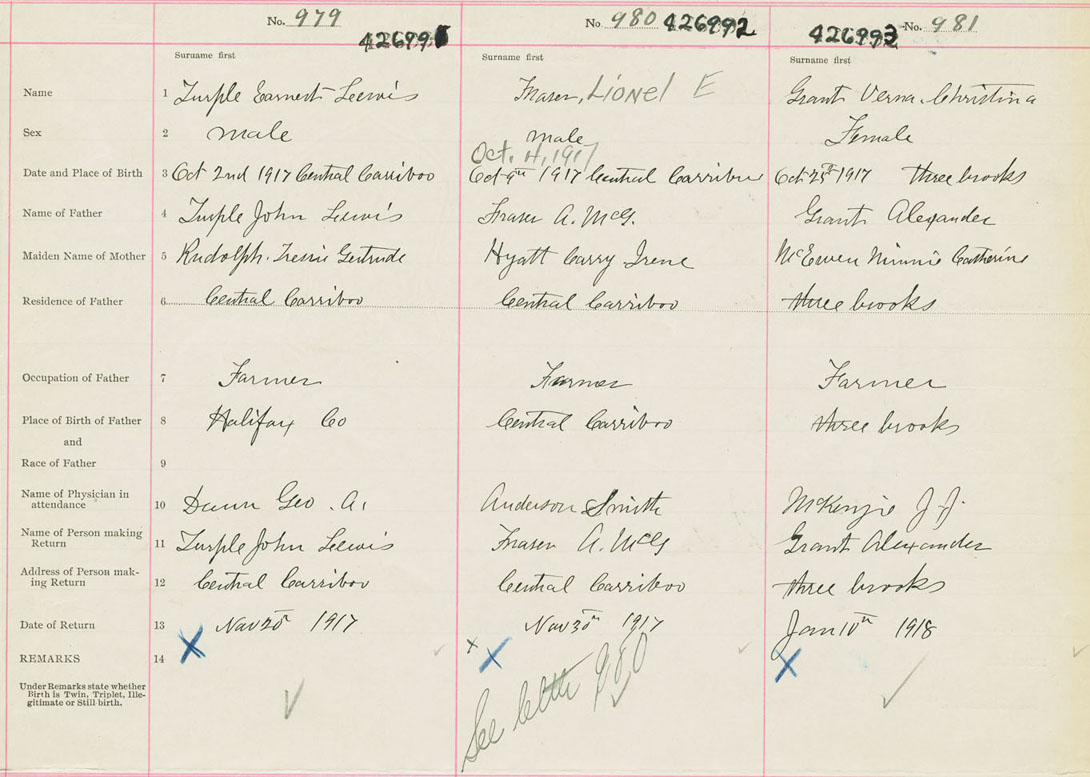 No. 979 No. 980 426992 426993 No. 981
Surname first Surname first Surname first
Name 1 Turple Earnest Leewis Fraser, Lionel E Grant Verna Christina
Sex 2 male male Female
Oct. 4, 1917
Date and Place of Birth 3 Oct 2nd 1917 Central Carriboo Oct 9th 1917 Central Carriboo Oct 25th 1917 three brooks
Name of Father 4 Turple John Leewis Fraser A. McG. Grant Alexander
Maiden Name of Mother 5 Rudolph Gertrude Hyatt Carry Irene McEwen Minnie Catherine
Residence of Father 6 Central Carriboo Central Carriboo three brooks
Occupation of Father 7 Farmer Farmer Farmer
Place of Birth of Father 8 Halifax Co Central Carriboo three brooks
and
Race of Father 9
Name of Physician in
attendance 10 Dunn Geo. A. Anderson Smith McKenzie J. J.
Name of Person making
Return 11 Turple John Leewis Fraser A. McG Grant Alexander
Address of Person mak-
ing Return 12 Central Carriboo Central Carriboo three brooks
Date of Return 13 Nov 1917 Nov 30th 1917 Jan 10th 1918
REMARKS 14
See letter 980
Under Remarks state whether
Birth is Twin, Triplet, Ille-
gitimate or Still birth.